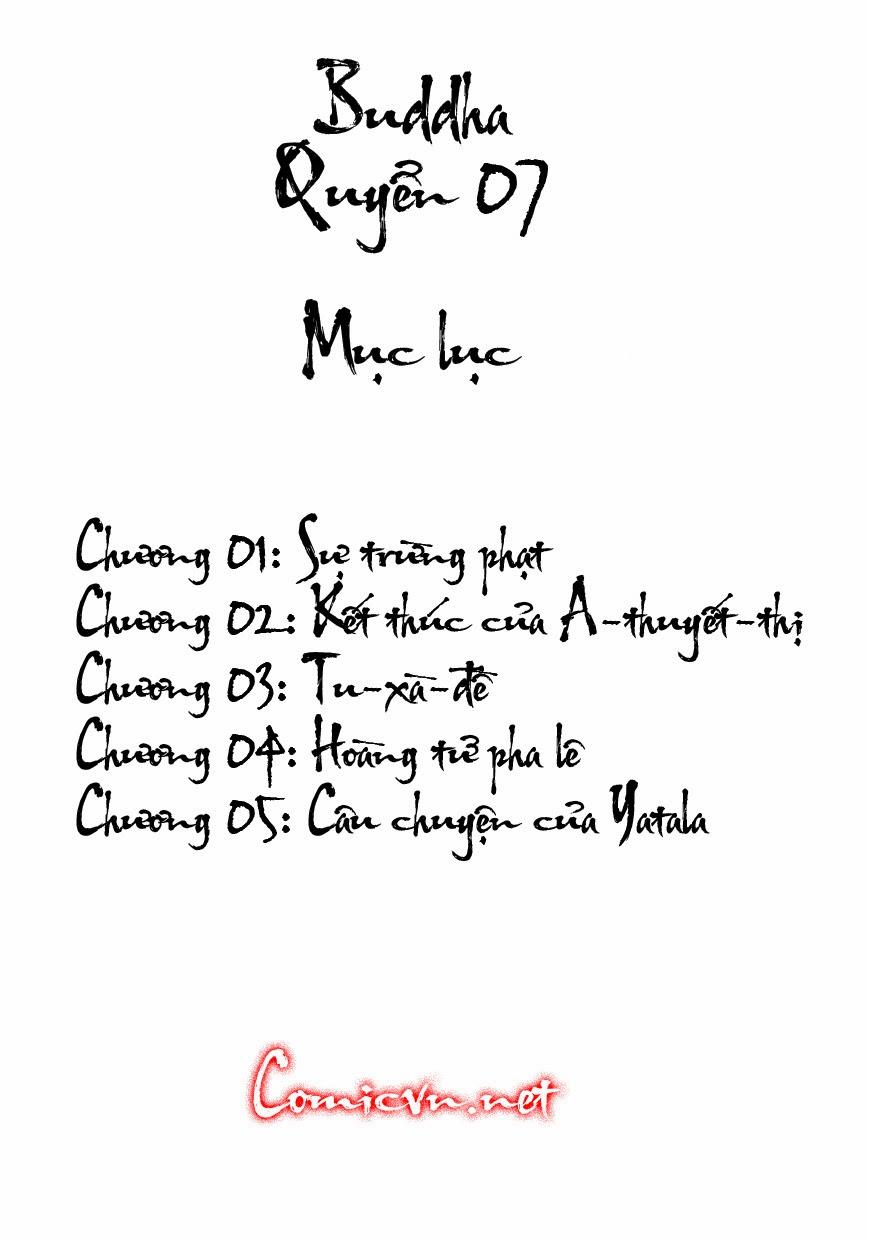 Buddha
Quyển 07
Mục lục
Chương 01: Sự trừng phạt
Chương 02: Kết thúc của A-thuyết-thị
Chương 03: Tu-xà-đề
Chương 04: Hoàng tử pha lê
Chương 05: Câu chuyện của Yatala
Comicvn.net